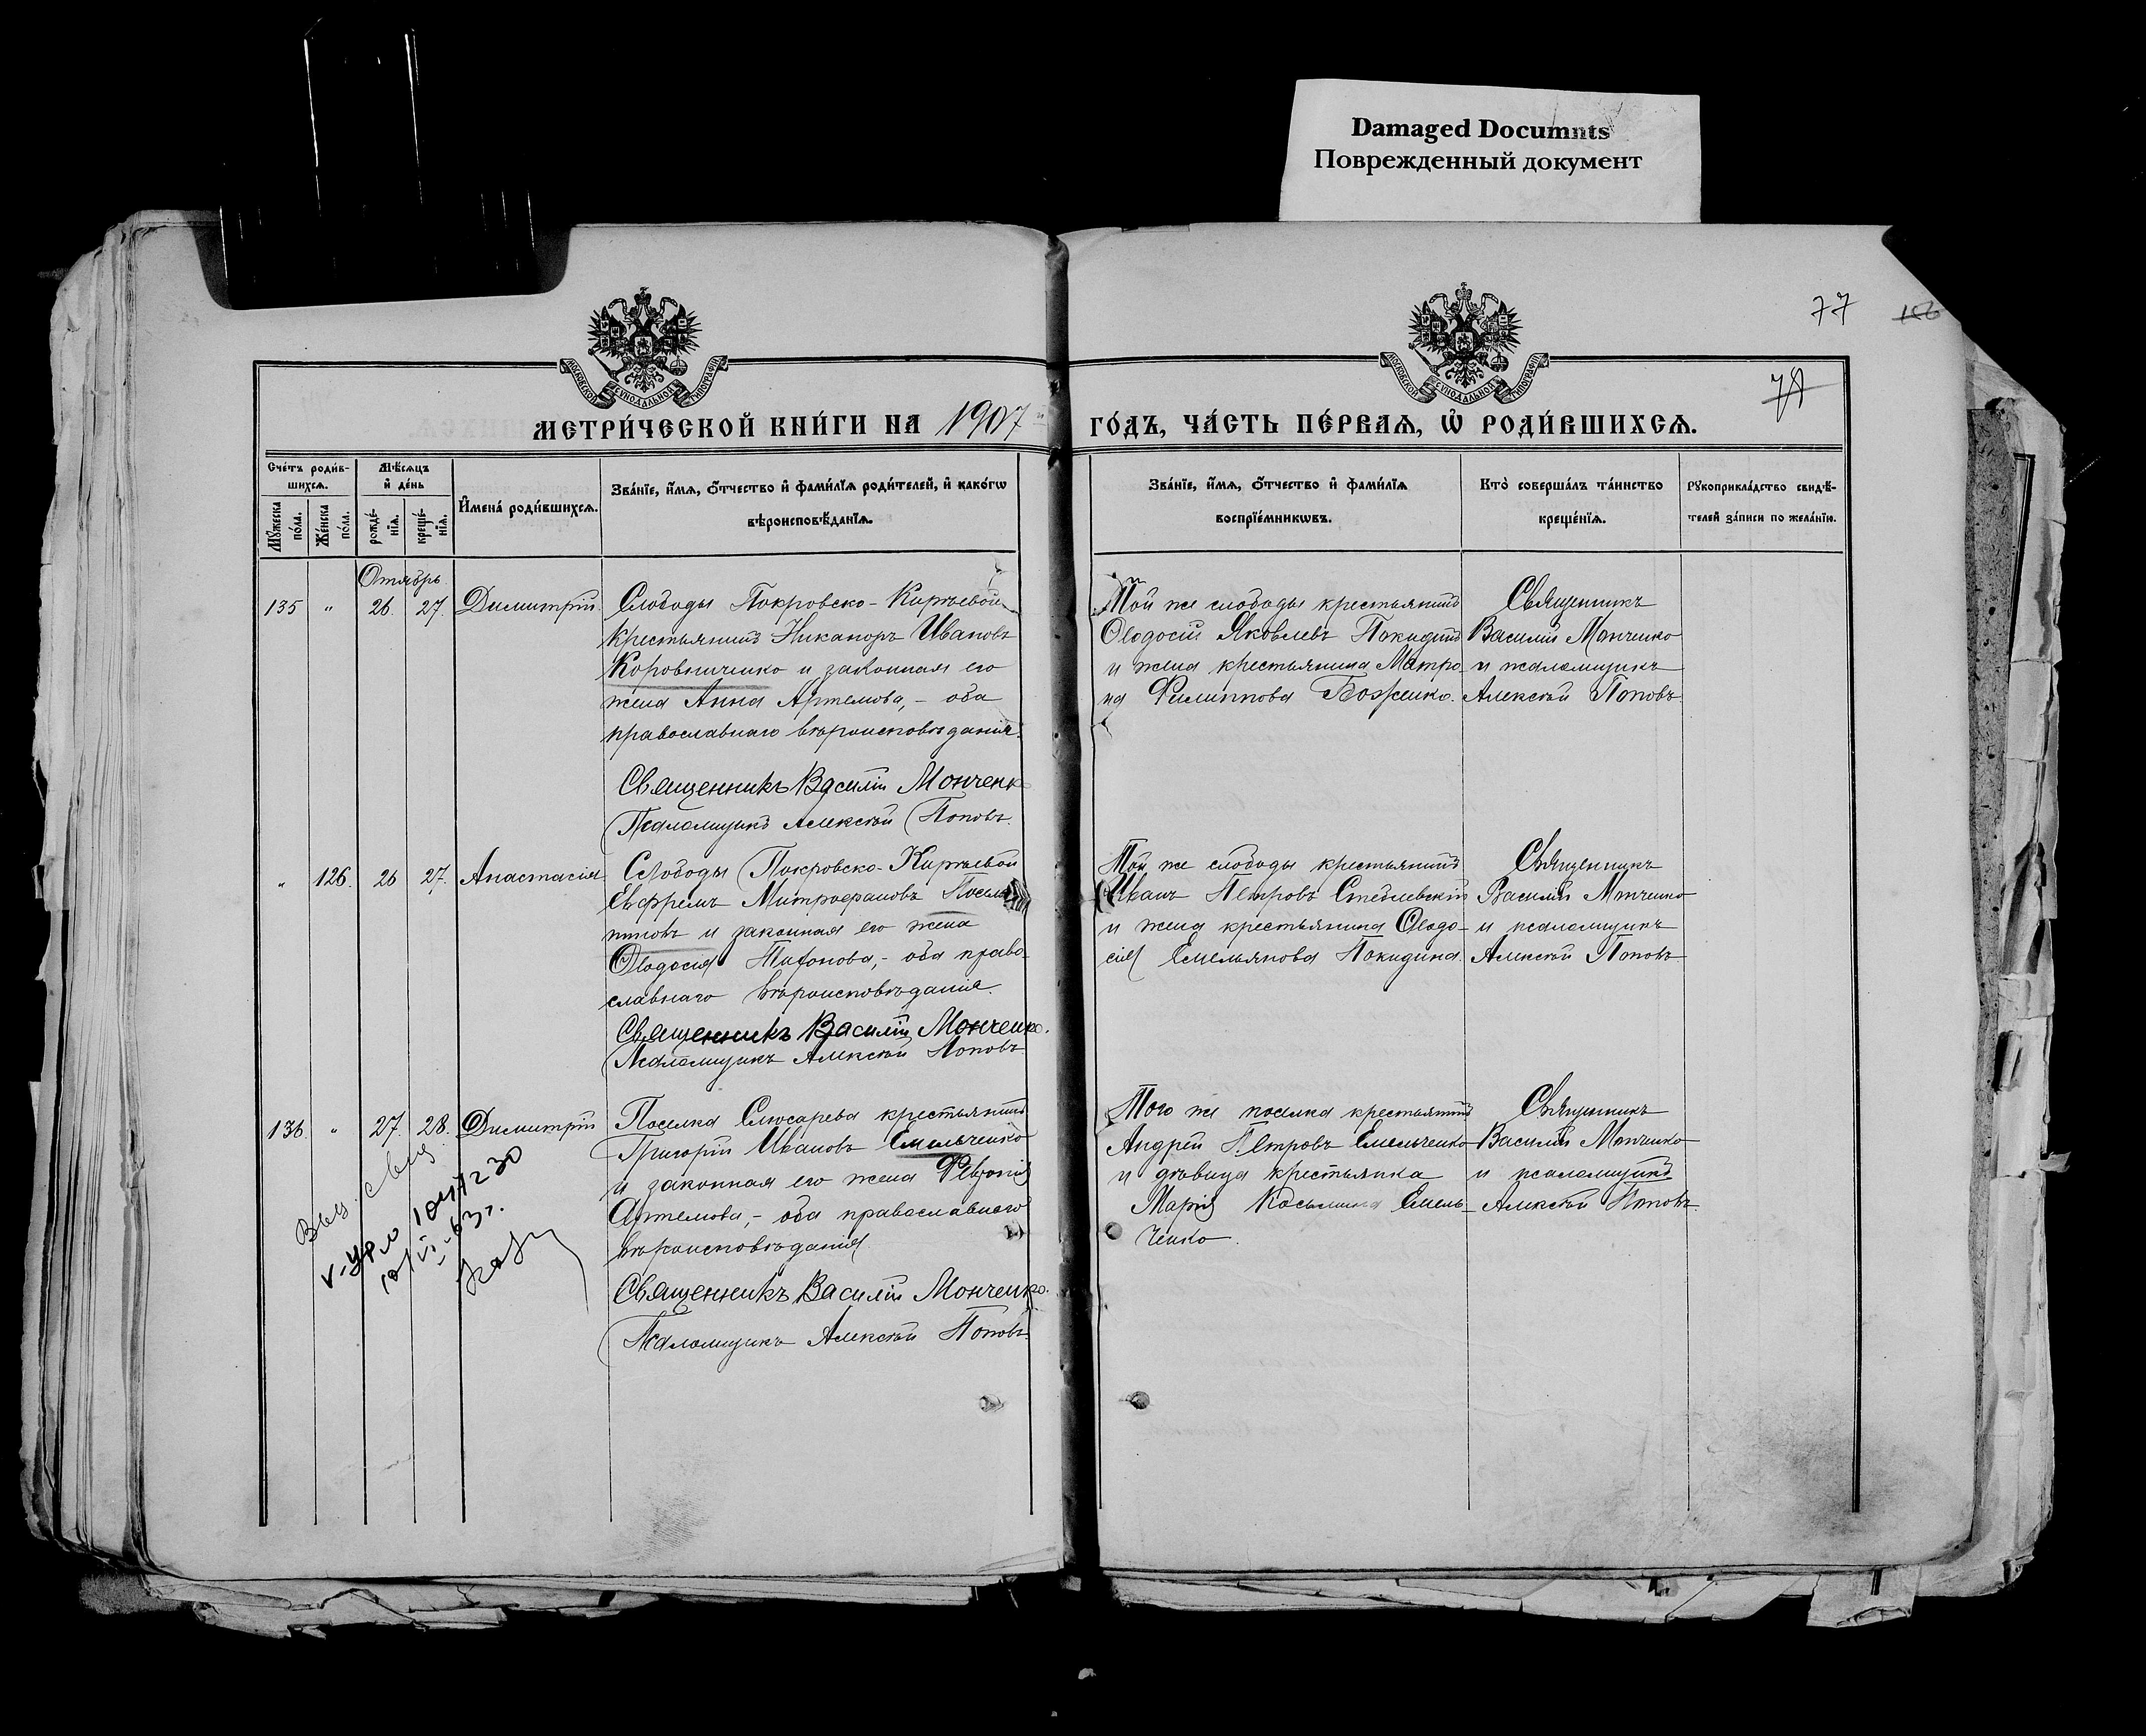 Damaged Documnts
Поврежденный документ
77
МОСКОВСКОЙ СУНОДАЛЬНОЙ ТИПОГРАФІИ
МОСКОВСКОЙ СУНОДАЛЬНОЙ ТИПОГРАФІИ
МЕТРИ́ЧЕСКОЙ КНИ́ГИ НА 1907 ГО́ДЪ, ЧА́СТЬ ПЕ́РВАѦ, Ѽ РОДИ́ВШИХСѦ.
Сче́тъ роди́в-
шихсѧ.
Мꙋжеска по́ла.
Же́нска по́ла.
Мѣ́сѧцъ и҆ де́нь
рожде́-нїѧ.
креще́-нїѧ.
И҆мена̀ роди́вшихсѧ.
Зва́нїе, и҆́мѧ, ѻ҆́тчество и҆ фами́лїѧ роди́телей, и҆ како́гѡ
вѣроисповѣ́данїѧ.
Зва́нїе, и҆́мѧ, ѻ҆́тчество и҆ фами́лїѧ
воспрїе́мникѡвъ.
Кто̀ соверша́лъ та́инство
креще́нїѧ.
Рꙋкоприкла́дство свидѣ́-
телей за́писи по жела́нїю.
Октябрь
135 " 26. 27. Димитрій
Слободы Покровско-Киръевой
крестьянинъ Никаноръ Ивановъ
Коровниченко и законная его
жена Анна Артемова,- оба
православнаго вѣроисповѣданія.
Священникъ Василій Монченк
Псаломщикъ Алексѣй Поповъ.
Той же слободы крестьянинъ
Ѳеодосій Яковлевъ Покидинъ
и жена крестьянина Матро-
на Филиппова Боженко.
Священникъ
Василій Монченко
и псаломщикъ
Алексѣй Поповъ
" 126. 26 27. Анастасія
Слободы Покровско-Киръевой
Евфремъ Митрофановъ
и законная его жена
Ѳеодосія Тихонова,- оба право-
славнаго вѣроисповѣданія.
Священникъ Василій Монченко.
Псаломщикъ Алексѣй Поповъ
Той же слободы крестьянинъ
Иванъ Петровъ Стеблевскій
и жена крестьянина Ѳеодо-
сія Емельянова Покидина.
Священникъ
Василій Монченко
и псаломщикъ
Алексѣй Поповъ
136. " 27. 28. Димитрій
Поселка Слюсарева крестьянинъ
Григорій Ивановъ Емельченко
и законная его жена Февронія
Артемова,- оба православнаго
вѣроисповѣданія.
Священникъ Василій Монченко.
Псаломщикъ Алексѣй Поповъ.
Того же поселка крестьянинъ
Андрей Петровъ Емельченко
и дѣвица крестьянка
Марія Косьмина Емель-
ченко.
Священникъ
Василій Монченко
и псаломщикъ
Алексѣй Поповъ.